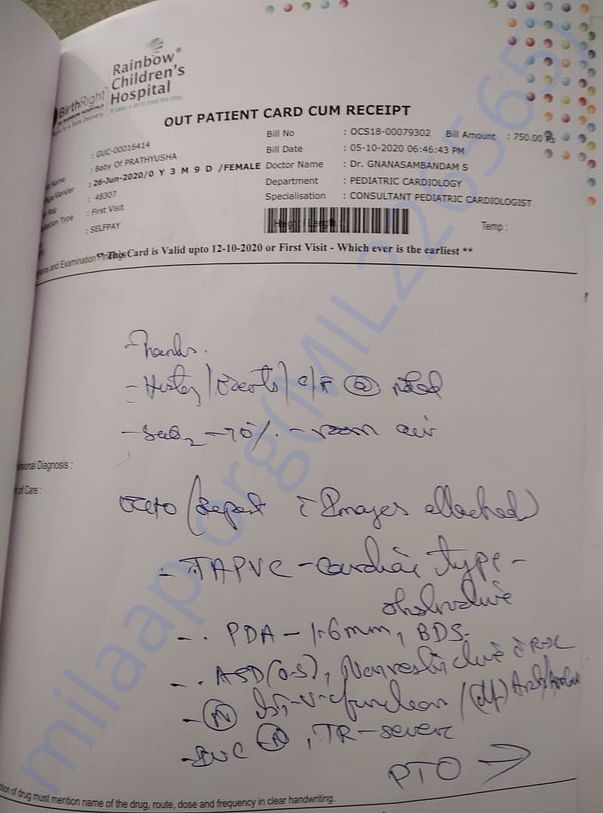 Rainbow®
Children's
Hospital
BirthRight™
BY RAINBOW HOSPITALS
It takes a lot to treat the little.
OUT PATIENT CARD CUM RECEIPT
: GUC-00016414
: Baby Of PRATHYUSHA
: 26-Jun-2020/0 Y 3 M 9 D /FEMALE
: 48307
: First Visit
: SELFPAY
Bill No : OCS18-00079302 Bill Amount : 750.00 Rs
Bill Date : 05-10-2020 06:46:43 PM
Doctor Name : Dr. GNANASAMBANDAM S
Department : PEDIATRIC CARDIOLOGY
Specialisation : CONSULTANT PEDIATRIC CARDIOLOGIST
Temp :
**This Card is Valid upto 12-10-2020 or First Visit - Which ever is the earliest **
and Examination
- Thanks.
- / / noted
- SaO2 - 70% - room air
isional Diagnosis :
of Care :
(Report Images attached)
- TAPVC - cardiac type -
obstructive
- . PDA - 1.6mm, BDS.
- . ASD(OS), Nonrestrictive R-L
- (N) function /
- SVC , TR - severe
PTO →
tion of drug must mention name of the drug, route, dose and frequency in clear handwriting.
milaap.org(MIL226565)